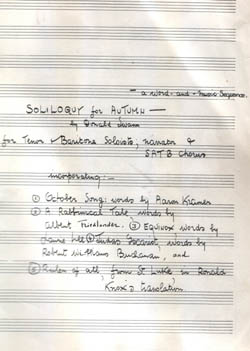 — a word - and - music Sequence.
SOLILOQUY for AUTUMN —
by Donald Swann
for Tenor & Baritone Soloists, narrator &
SATB Chorus
incorporating:—
① October Song: words by Aaron Kramer
② A Rabbinical Tale words by
Albert Friedlander. ③ EQUINOX words by
Laurie Lee ④ Judas Iscariot, words by
Robert Williams Buchanan, and
⑤ Ruler of all, from St Luke in Ronald
Knox's Translation.